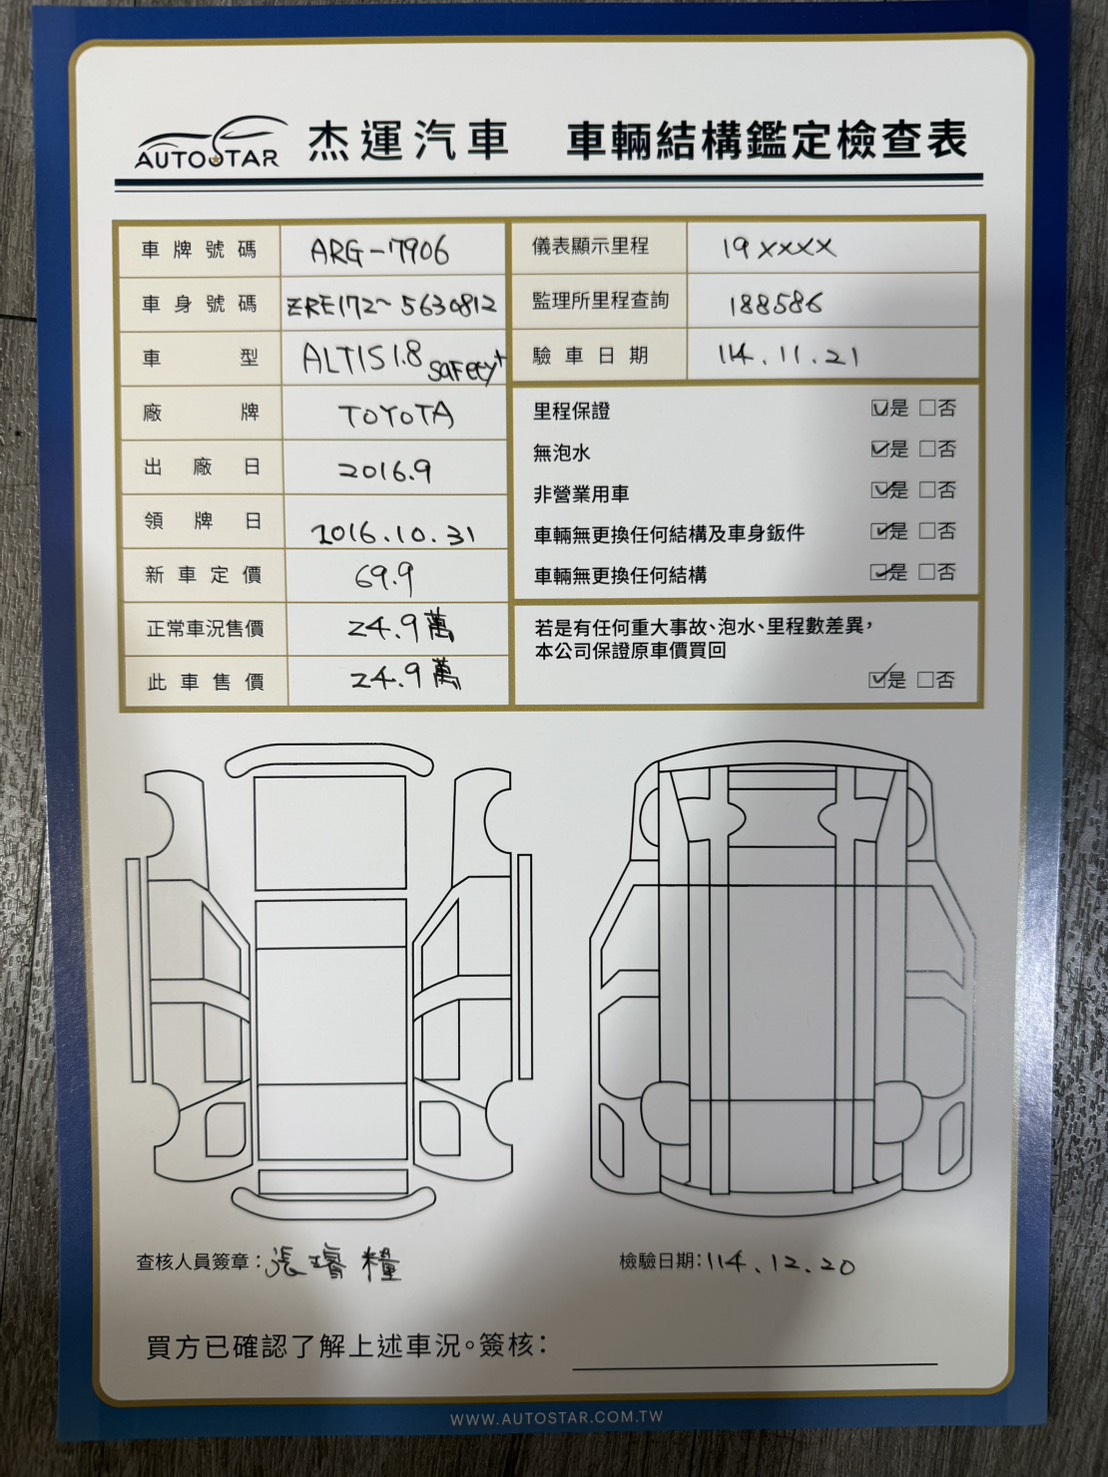 AUTOSTAR 杰運汽車 車輛結構鑑定檢查表
車牌號碼 ARG-7906
車身號碼 ZRE172~5630812
車型 ALTIS 1.8 safety+
廠牌 TOYOTA
出廠日 2016.9
領牌日 2016.10.31
新車定價 69.9
正常車況售價 24.9萬
此車售價 24.9萬
儀表顯示里程 19xxxx
監理所里程查詢 188586
驗車日期 114.11.21
里程保證 ☑是 □否
無泡水 ☑是 □否
非營業用車 ☑是 □否
車輛無更換任何結構及車身鈑件 ☑是 □否
車輛無更換任何結構 ☑是 □否
若是有任何重大事故、泡水、里程數差異，
本公司保證原車價買回
☑是 □否
查核人員簽章：張 糧
檢驗日期：114.12.20
買方已確認了解上述車況。簽核：
WWW.AUTOSTAR.COM.TW